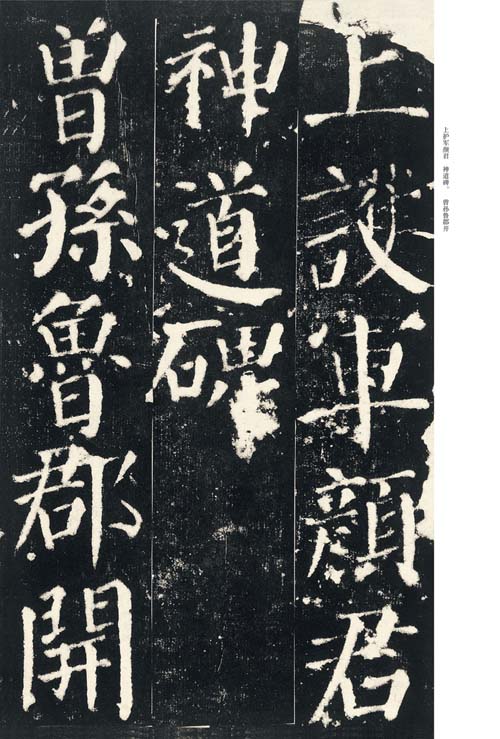 上護軍顏君
神道碑
曾孫魯郡開
上护军颜君　神道碑。　曾孙鲁郡开